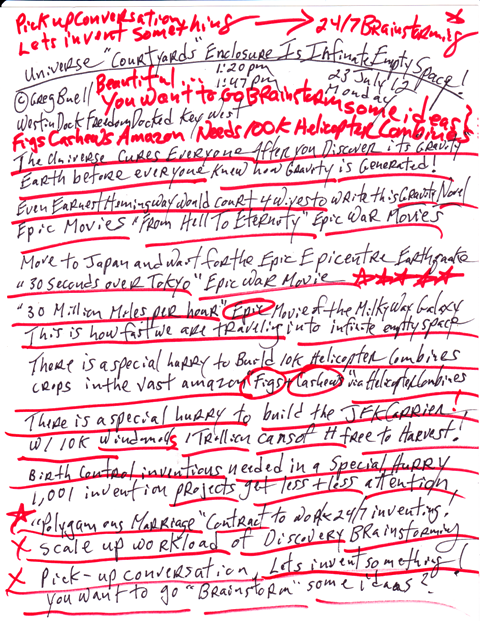 Pick up Conversation
Lets invent Something → 24/7 Brainstorming
Universe "Courtyards" Enclosure Is Infinate Empty Space!
1:20pm
1:47pm
23 July '12
Monday
© Greg Buell
Beautiful...
You want to Go Brainstorm some ideas?
Westin Dock Freedom Docked Key West
Figs Cashews Amazon Needs 100K Helicopter Combines"
The Universe Cures Everyone After you Discover its Gravity
Earth before everyone Knew how Gravity is Generated!
Even Earnest Hemingway would court 4 wives to write this Gravity Novel
Epic Movies "From Hell To Eternity" Epic War Movies
Move to Japan and wait for the Epic Epicentre Earthquake
"30 Seconds over Tokyo" Epic War Movie
"30 Million Miles per hour" Epic Movie of the Milky Way Galaxy
This is how fast we are traveling into infinite empty space
There is a special hurry to Build 10K Helicopter Combines
crops in the vast amazon "Figs + Cashews" via Helicopter Combines
There is a special hurry to build the JFK Carrier!
w/ 10K windmills 1 Trillion cans of H free to Harvest!
Birth Control inventions needed in a Special Hurry
1,001 invention projects get less + less attention
"Polygamous Marriage" Contract to work 24/7 inventing,
scale up workload of Discovery Brainstorming
Pick-up conversation, Lets invent something!
You want to go "Brainstorm" some ideas?